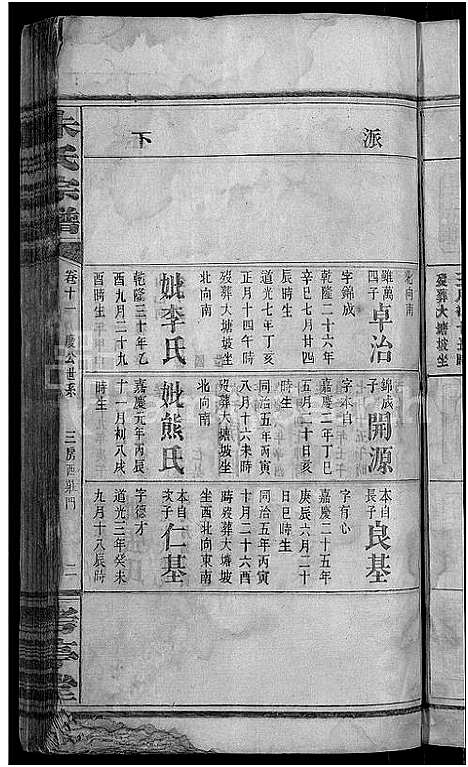 歿葬大塘坡坐
派下
北向南
雖萬
四子
卓治
字錦成
乾隆二十六年
辛巳七月廿四
辰時生
道光七年丁亥
正月十四午時
歿葬大塘坡坐
北向南
妣李氏
乾隆三十年乙
酉九月二十九
酉時生
錦成
子
開源
字本自
嘉慶二年丁巳
五月二十日亥
時生
同治五年丙寅
八月十六未時
歿葬大塘坡坐
北向南
妣熊氏
嘉慶元年丙辰
十一月初八戌
時生
本自
長子
良基
字有心
嘉慶二十五年
庚辰六月二十
日巳時生
同治五年丙寅
十月二十六酉
時歿葬大塘坡
坐西北向東南
本自
次子
仁基
字德才
道光三年癸未
九月十八辰時
朱氏宗譜
卷十一
慶公世系
三房西巢門
二
考亭堂